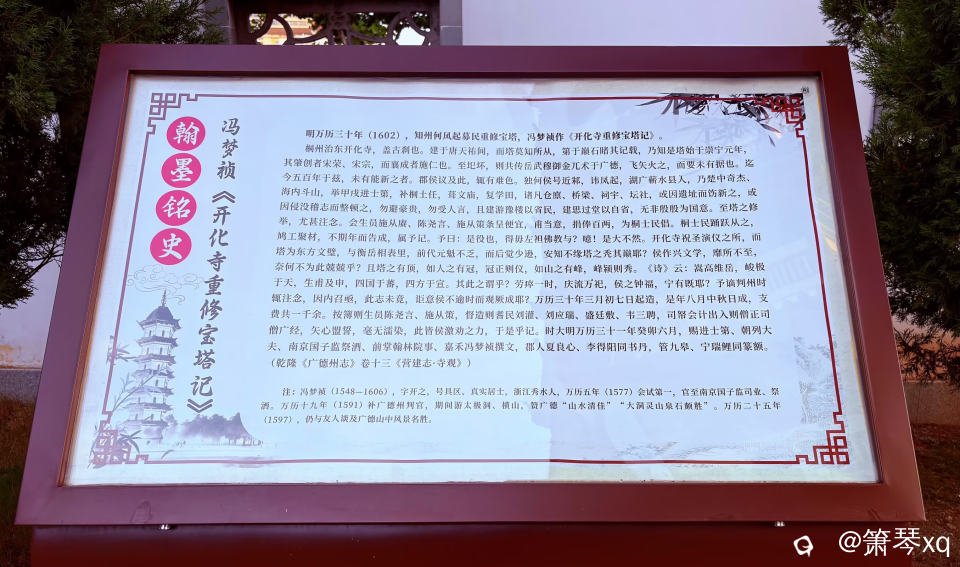 翰墨铭史
冯梦祯《开化寺重修宝塔记》
明万历三十年（1602），知州何凤起募民重修宝塔，冯梦祯作《开化寺重修宝塔记》。
桐州治东开化寺，盖古刹也。建于唐天祐间，而塔莫知所从，第于巅石睹其记载，乃知是塔始于崇宁元年，
其肇创者宋荣、宋宗，而襄成者施仁也。至圮坏，则共传岳武穆御金兀术于广德，飞矢火之，而要未有据也。迄
今五百年于兹，未有能新之者。郡侯议及此，辄有难也。独何侯号近邾，讳凤起，湖广蕲水县人，乃楚中奇杰、
海内斗山，举甲戌进士第，补桐土任，葺文庙，复学田，诸凡仓廪、桥梁、祠宇、坛社，或因遗址而饬新之，或
因侵没稽志而整顿之，勿避豪贵，勿受人言，且建游豫楼以省民，建思过堂以自省，无非殷殷为国意。至塔之修
举，尤甚注念。会生员施从赓、陈尧言、施从策条呈便宜，甫当意，捐俸百两，为桐士民倡。桐士民踊跃从之，
鸠工聚材，不期年而告成，属予记。予曰：是役也，得毋左袒佛教与？噫！是大不然。开化寺祝圣演仪之所，而
塔为东方文壁，与衡岳相表里，前代元魁不乏，而后觉少逊，安知不缘塔之秃其巅耶？侯作兴文学，靡所不至，
奈何不为此兢兢乎？且塔之有顶，如人之有冠，冠正则仪，如山之有峰，峰颖则秀。《诗》云：嵩高维岳，峻极
于天，生甫及申，四国于蕃，四方于宣。其此之谓乎？劳瘁一时，庆流万祀，侯之钟福，宁有既耶？予谪判州时
辄注念，因内召亟，此志未竟，讵意侯不逾时而观厥成耶？万历三十年三月初七日起造，是年八月中秋日成，支
费共一千余。按簿则生员陈尧言、施从策，督造则耆民刘灌、刘应瑞、盛廷敷、韦三聘，司帑会计出入则僧正司
僧广经，矢心盟誓，毫无濡染，此皆侯激劝之力，于是乎记。时大明万历三十一年癸卯六月，赐进士第、朝列大
夫、南京国子监祭酒、前掌翰林院事、嘉禾冯梦祯撰文，郡人夏良心、李得阳同书丹，管九皋、宁瑞鲤同篆额。
（乾隆《广德州志》卷十三《营建志·寺观》）
注：冯梦祯（1548—1606），字开之，号具区、真实居士，浙江秀水人，万历五年（1577）会试第一，官至南京国子监司业、祭
酒。万历十九年（1591）补广德州判官，期间游太极洞、横山，赞广德“山水清佳”“大洞灵山泉石颇胜”。万历二十五年
（1597），仍与友人谈及广德山中风景名胜。
@箫琴xq